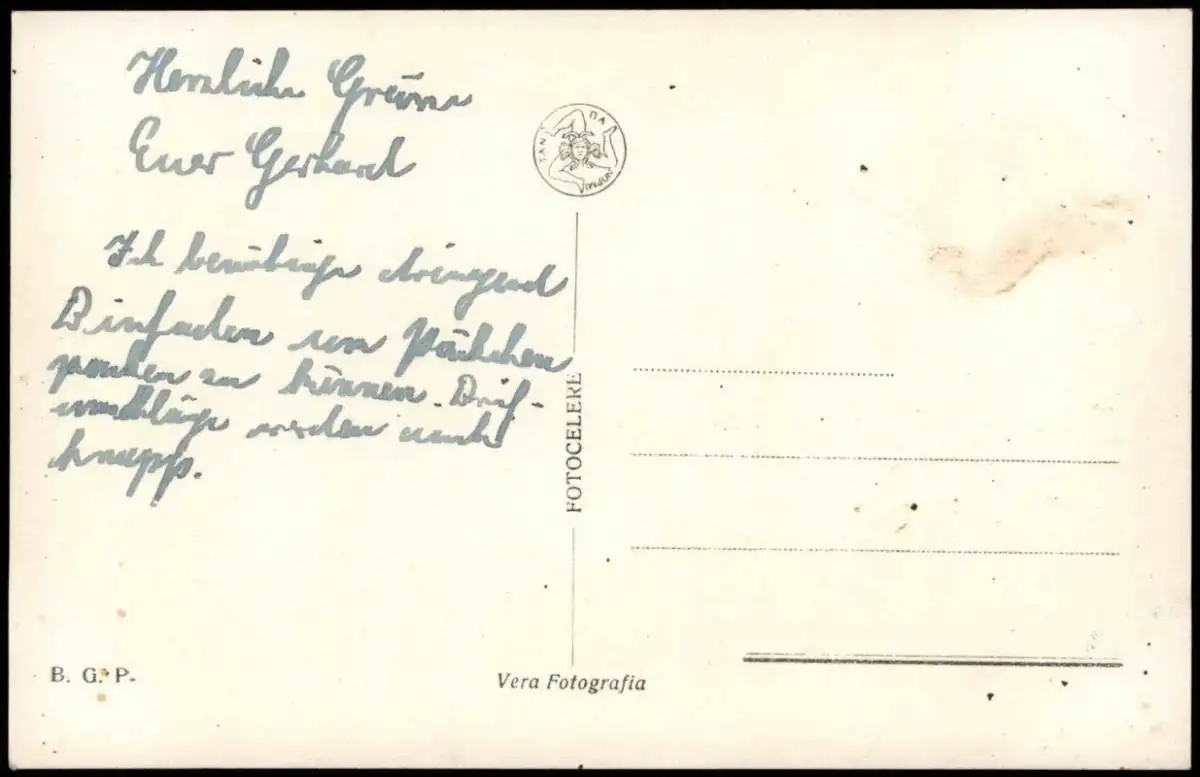 Herzliche Grüsse
Euer Gerhard
Ich benötige dringend
Bindfaden um Päckchen
packen zu können. Brief-
umschläge werden auch
knapp.
FOTOCELERE
B. G. P.
Vera Fotografia